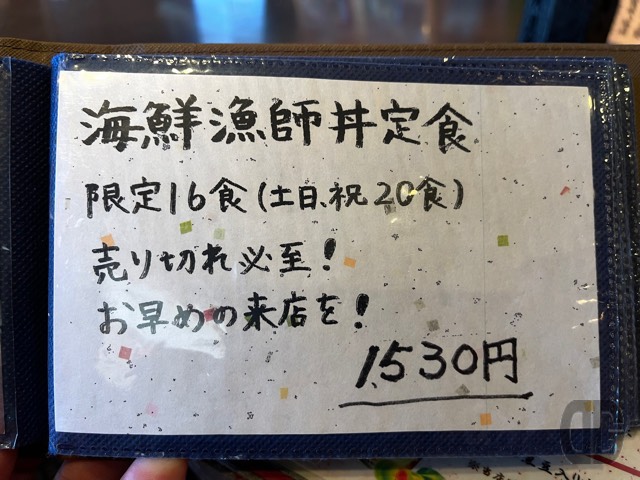 海鮮漁師丼定食
限定16食(土日、祝20食)
売り切れ必至!
お早めの来店を!
1,530円